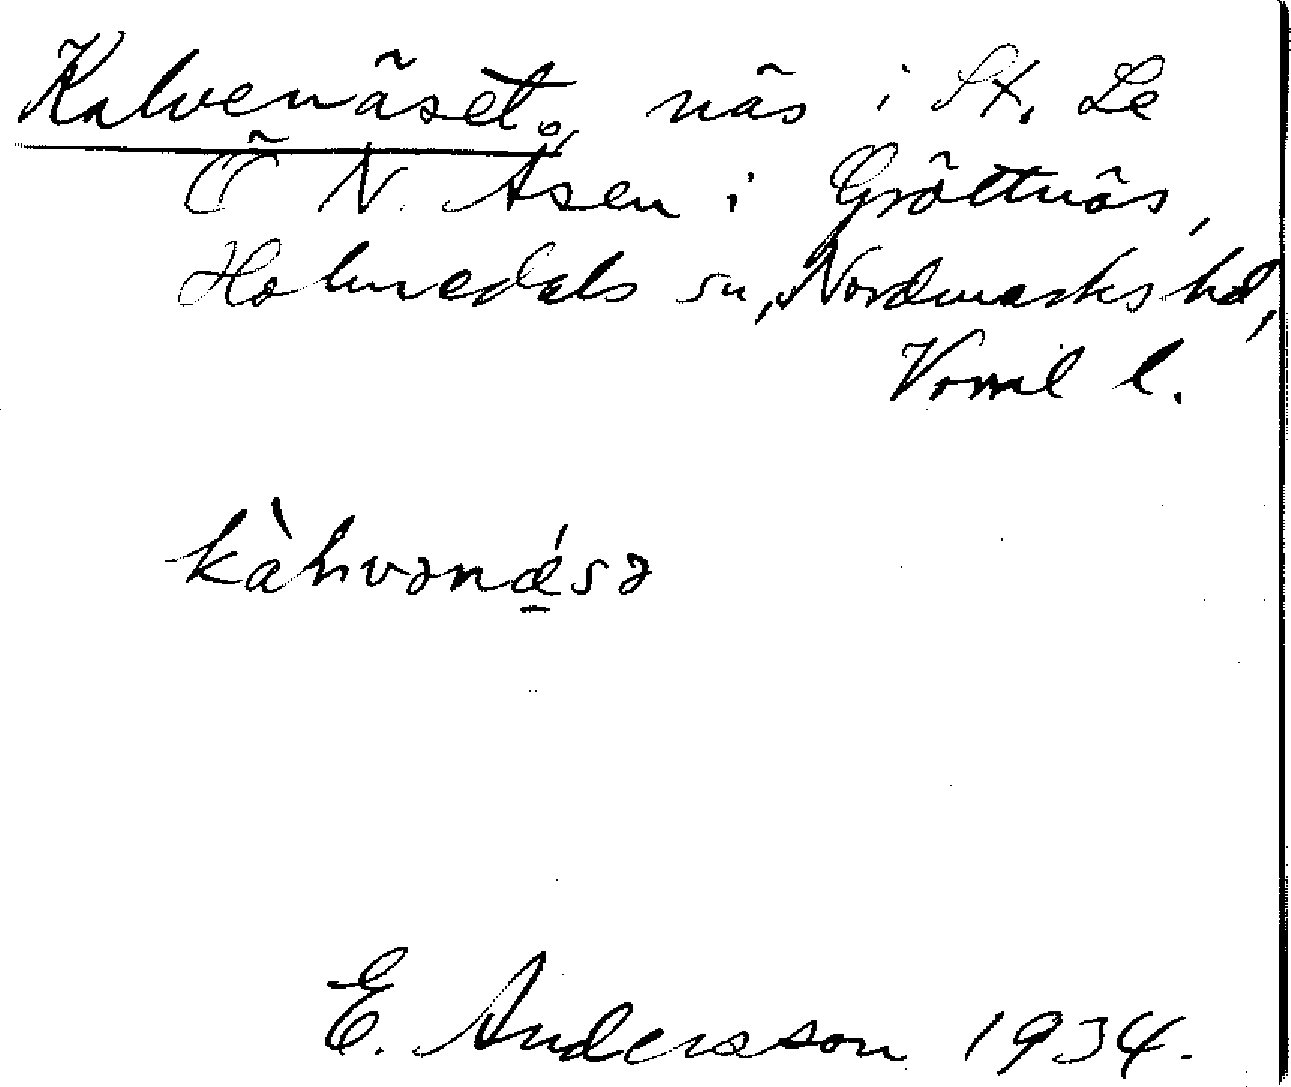 Kalvenäset, näs i St. Le
Ö N. Åsen i Gröttnäs,
Holmedals sn, Nordmarks hd,
Vrml l.
kàhvənǽsə
E. Andersson 1934.